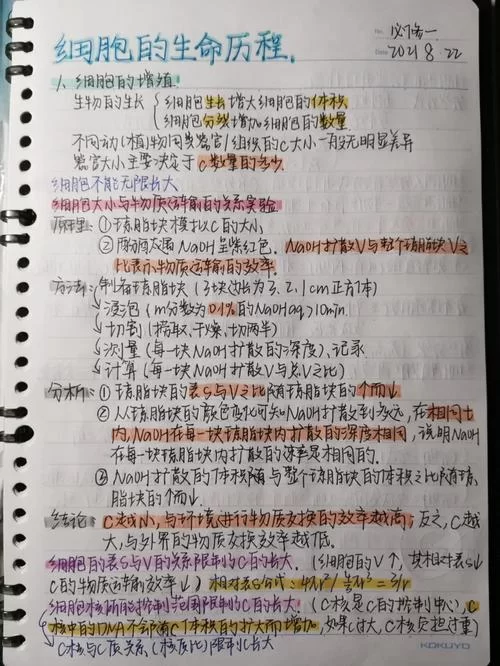 细胞的生命历程.
No. 必修一
Date 2021 8. 22
1、细胞的增殖.
生物的生长 { 细胞生长增大细胞的体积
细胞分裂增加细胞的数量
不同动(植)物同类器官/组织的C大小一般无明显差异
器官大小主要决定于C数量的多少.
细胞不能无限长大
细胞大小与物质运输的关系实验
原理: ①琼脂块模拟C的大小
②酚酞遇NaOH呈紫红色. NaOH扩散V与整个琼脂块V之
比表示物质运输的效率.
方法: 制备琼脂块(3块边长为3、2、1cm正方体)
浸泡(m分数为0.1%的NaOHaq)10min.
切割(捞取、干燥、切两半)
测量(每一块NaOH扩散的深度)、记录
计算(每一块NaOH扩散V与总V之比)
分析: ①琼脂块的表S与V之比随琼脂块的个而↓
②从琼脂块的颜色变化可知NaOH扩散到多远,在相同t
内,NaOH在每一块琼脂块内扩散的深度相同,说明NaOH
在每一块琼脂块内扩散的速率是相同的.
③NaOH扩散的体积 与整个琼脂块的体积之比随琼
脂块的个而↓.
结论: C越小,与环境进行物质交换的效率越高;反之,C越
大,与外界的物质交换效率越低.
细胞的表S与V的关系限制C的长大.(细胞的V↑,其相对表S↓
C的物质运输效率↓)相对表S
细胞核所能控制范围限制C的长大.(C核是C的控制中心),C
核中的DNA不会随C体积的扩大而增加,如果C过大,C核负担过重)
C核与C质关系(核质比)限制C长大
KOKUYO